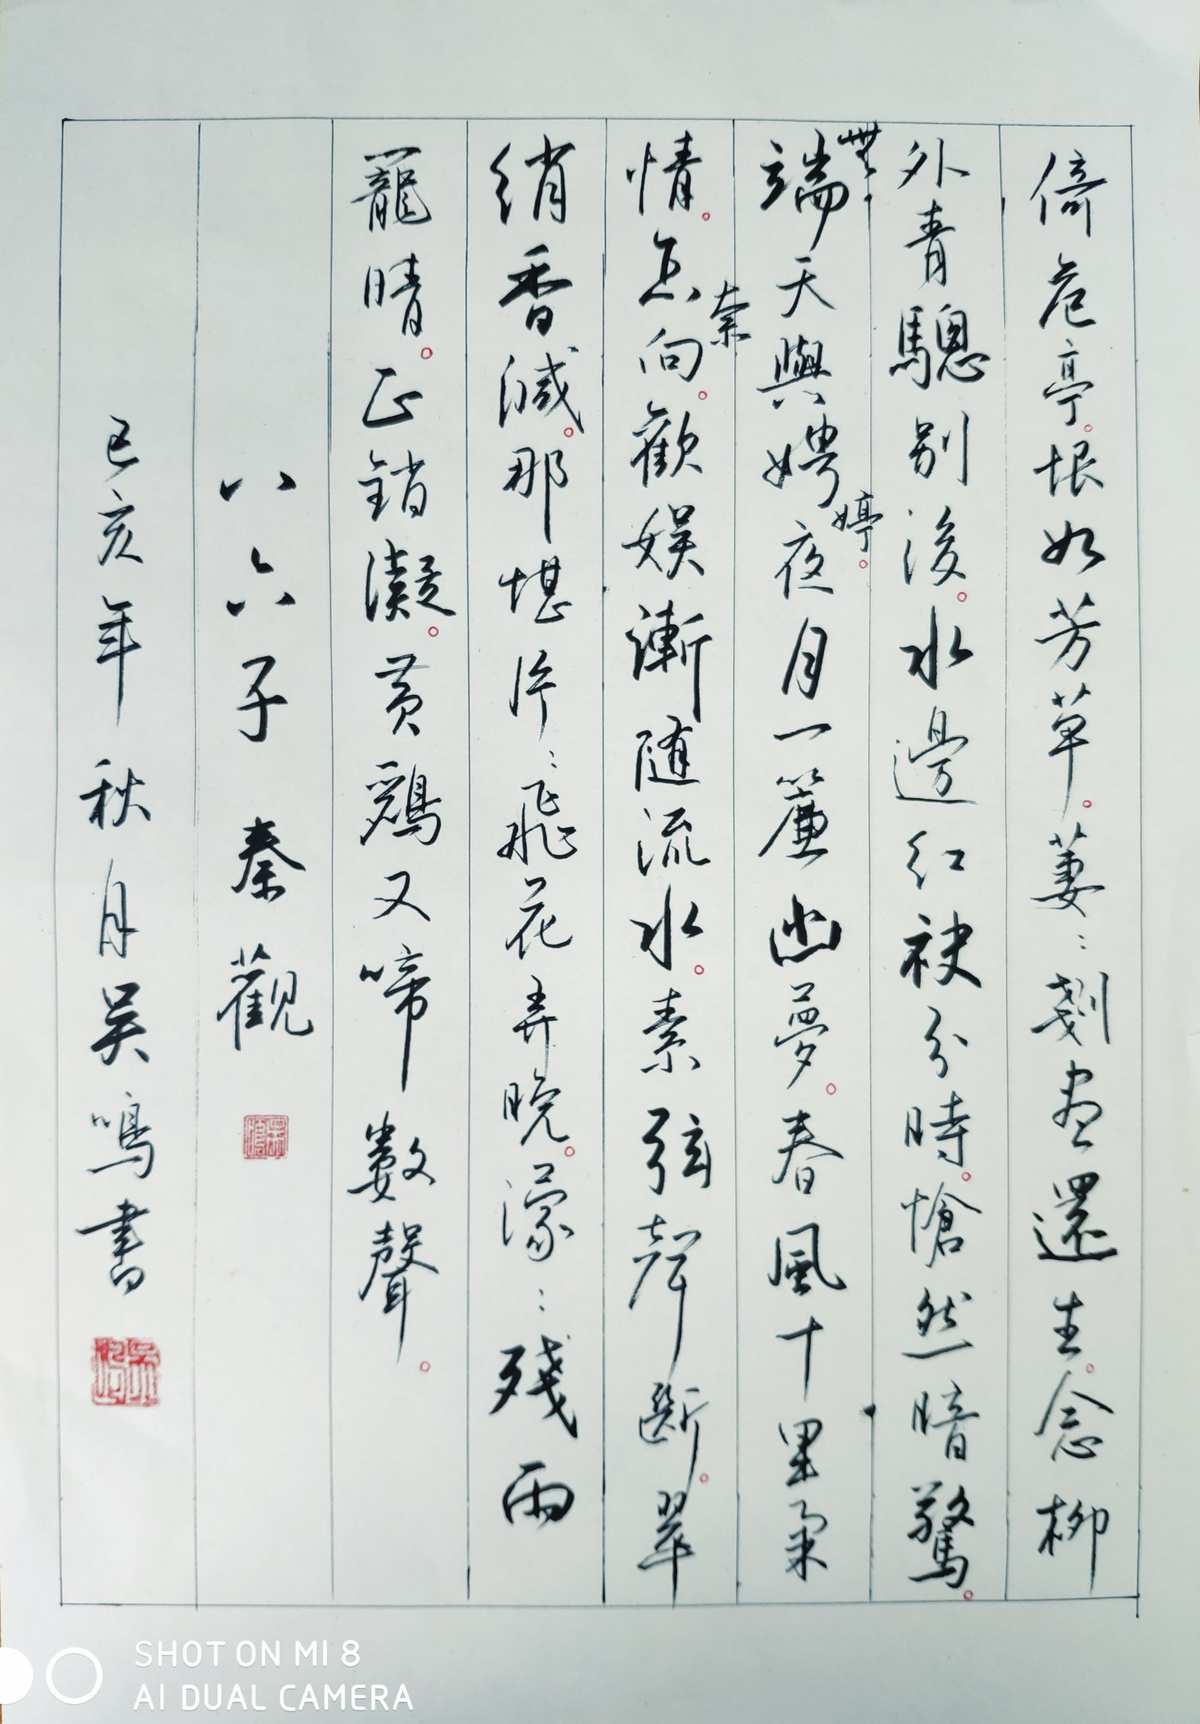 倚危亭。恨如芳草。萋:剗盡還生。念柳
外青驄別後。水邊紅袂分時。愴然暗驚。
無
端天與娉夜月一簾幽夢。春風十里柔
婷。
情。怎向。歡娛漸隨流水。素弦聲斷。翠
奈
綃香減。那堪片:飛花弄晚。濛:殘雨
籠晴。正銷凝。黃鸝又啼數聲。
八六子 秦觀
己亥年秋月吴鳴書
SHOT ON MI 8
AI DUAL CAMERA